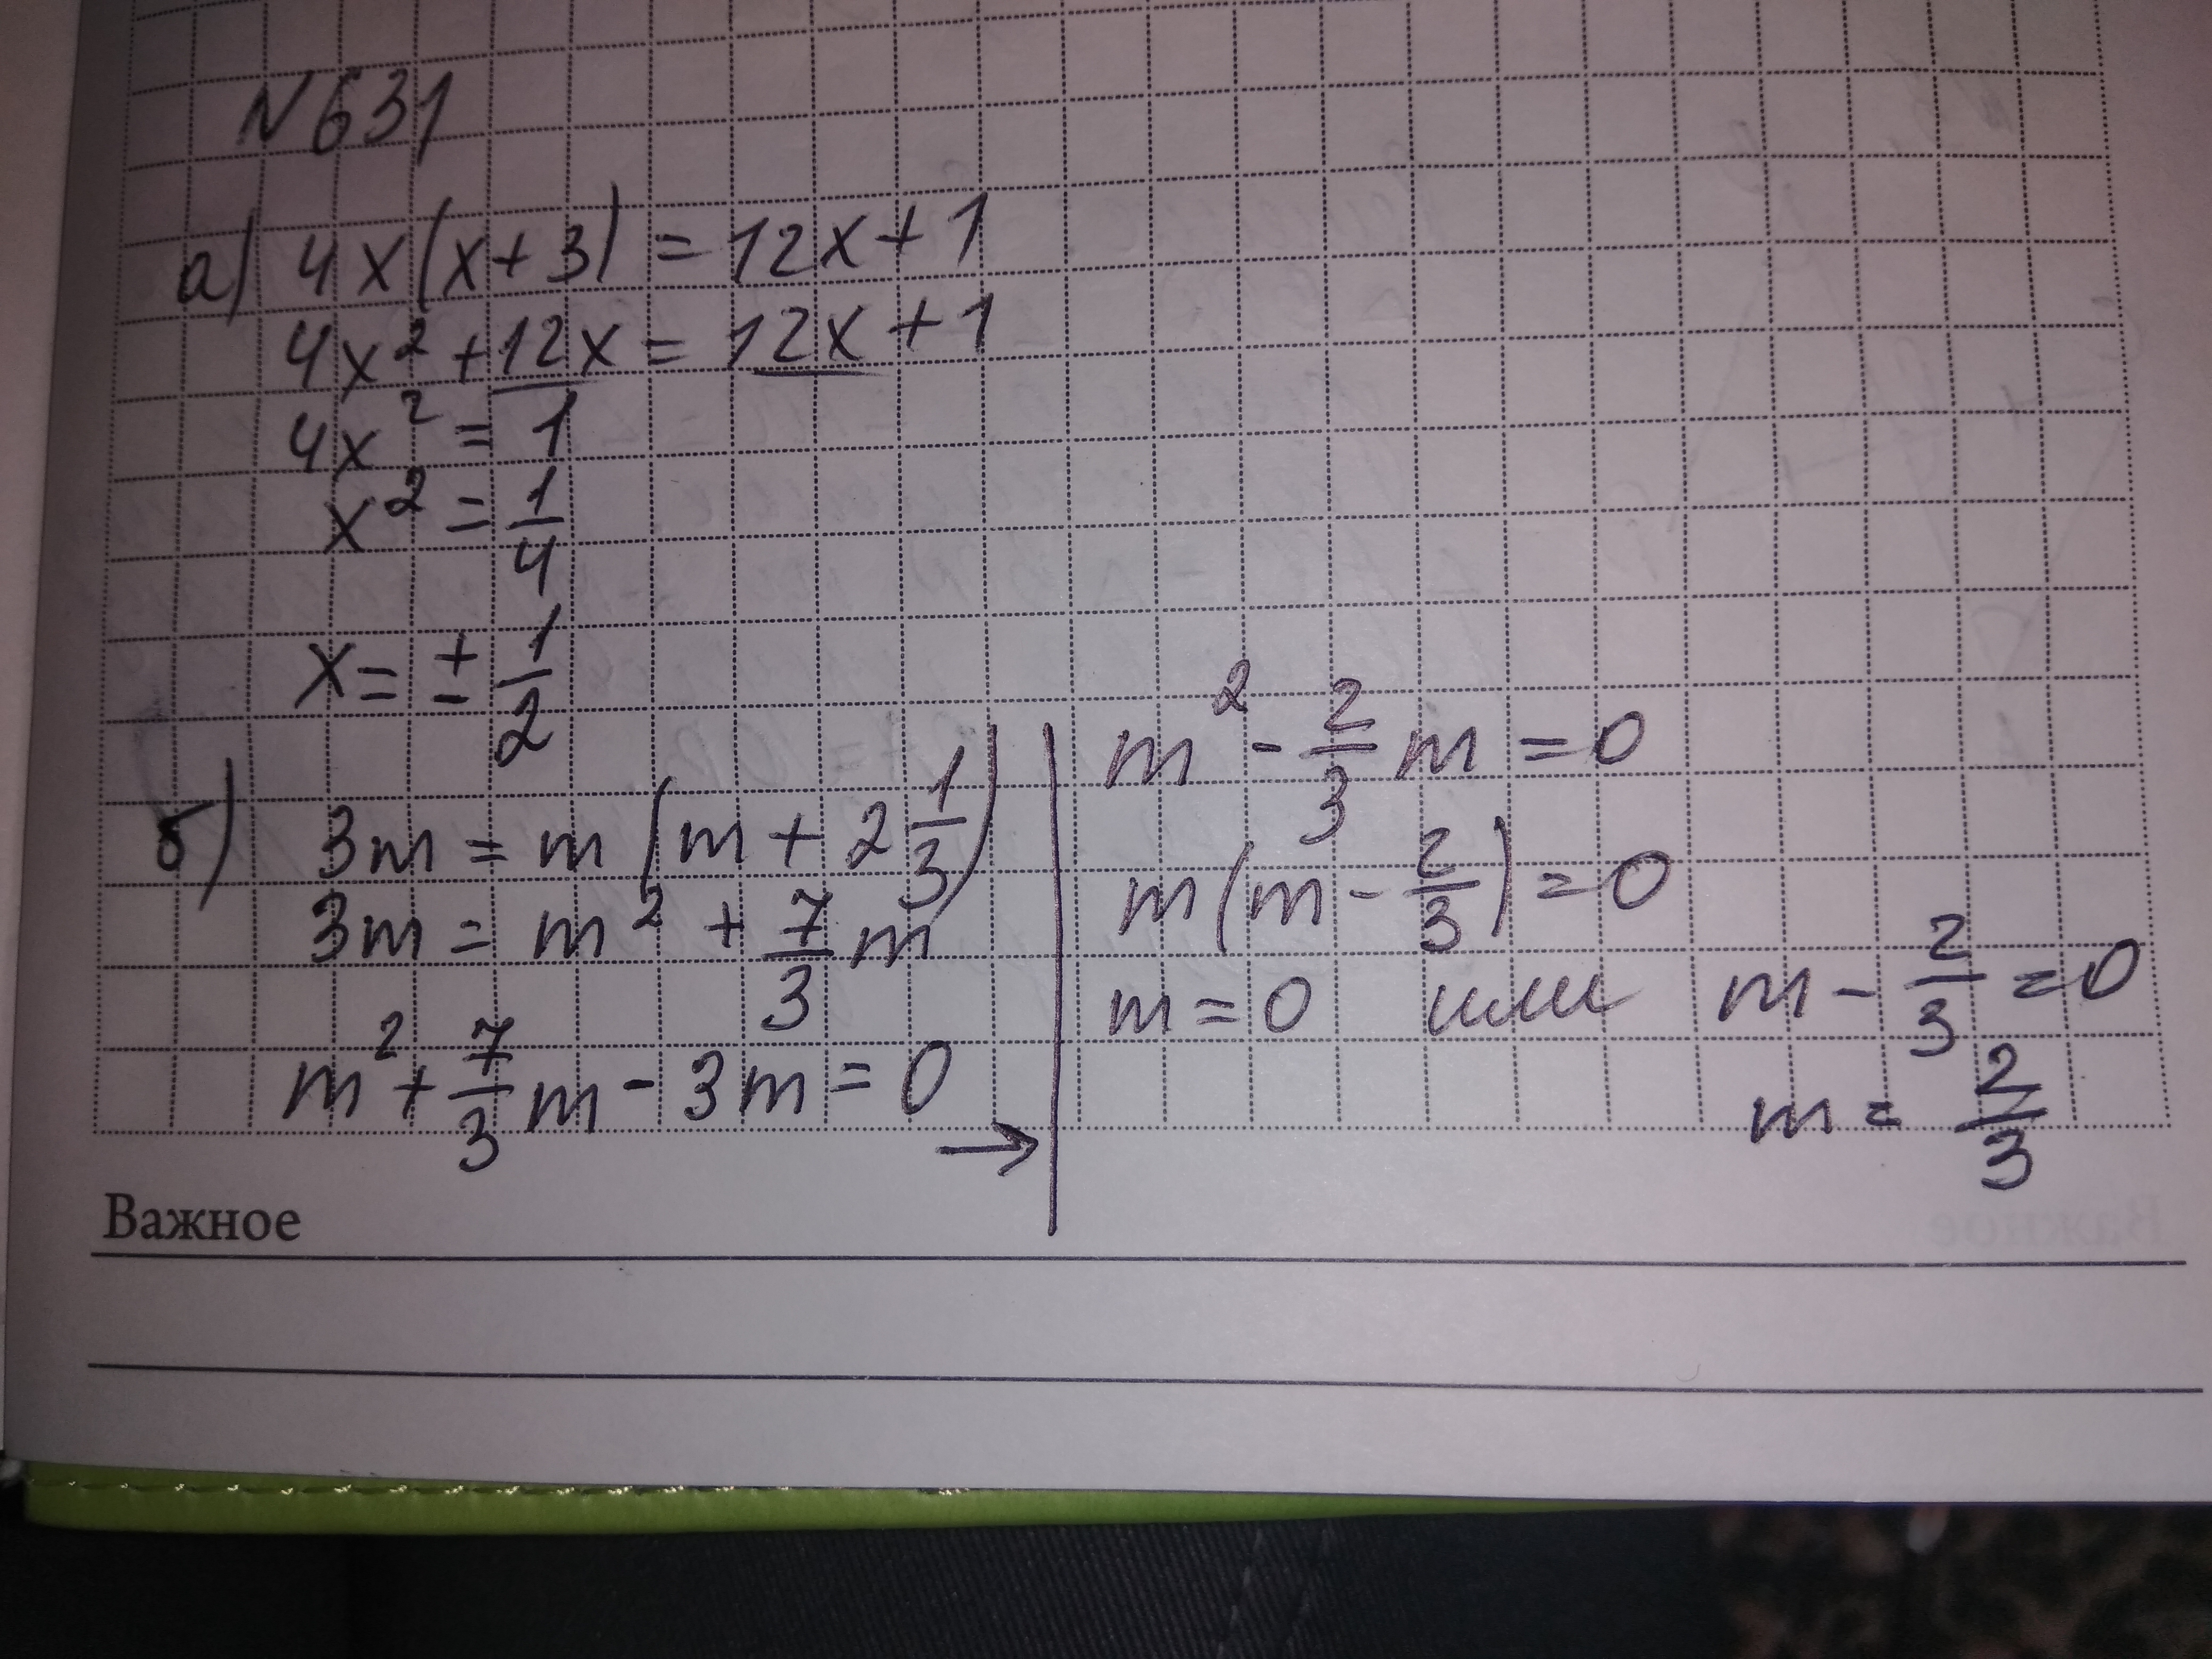 N 631
а) 4x(x+3) = 12x + 1
4x² + 12x = 12x + 1
4x² = 1
x² = 1/4
x = ± 1/2
б) 3m = m(m + 2 1/3)
3m = m² + 7/3 m
m² + 7/3 m - 3m = 0 →
m² - 2/3 m = 0
m(m - 2/3) = 0
m = 0 или m - 2/3 = 0
m = 2/3
Важное